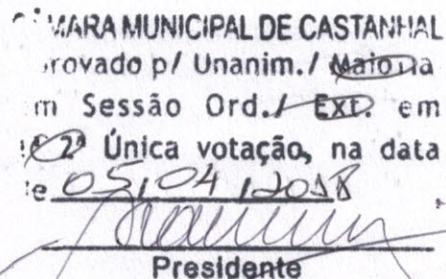 CÂMARA MUNICIPAL DE CASTANHAL
rovado p/ Unanim./ Maioria
m Sessão Ord./ Ext. em
1ª 2ª Única votação, na data
e 05/04/2018
Presidente